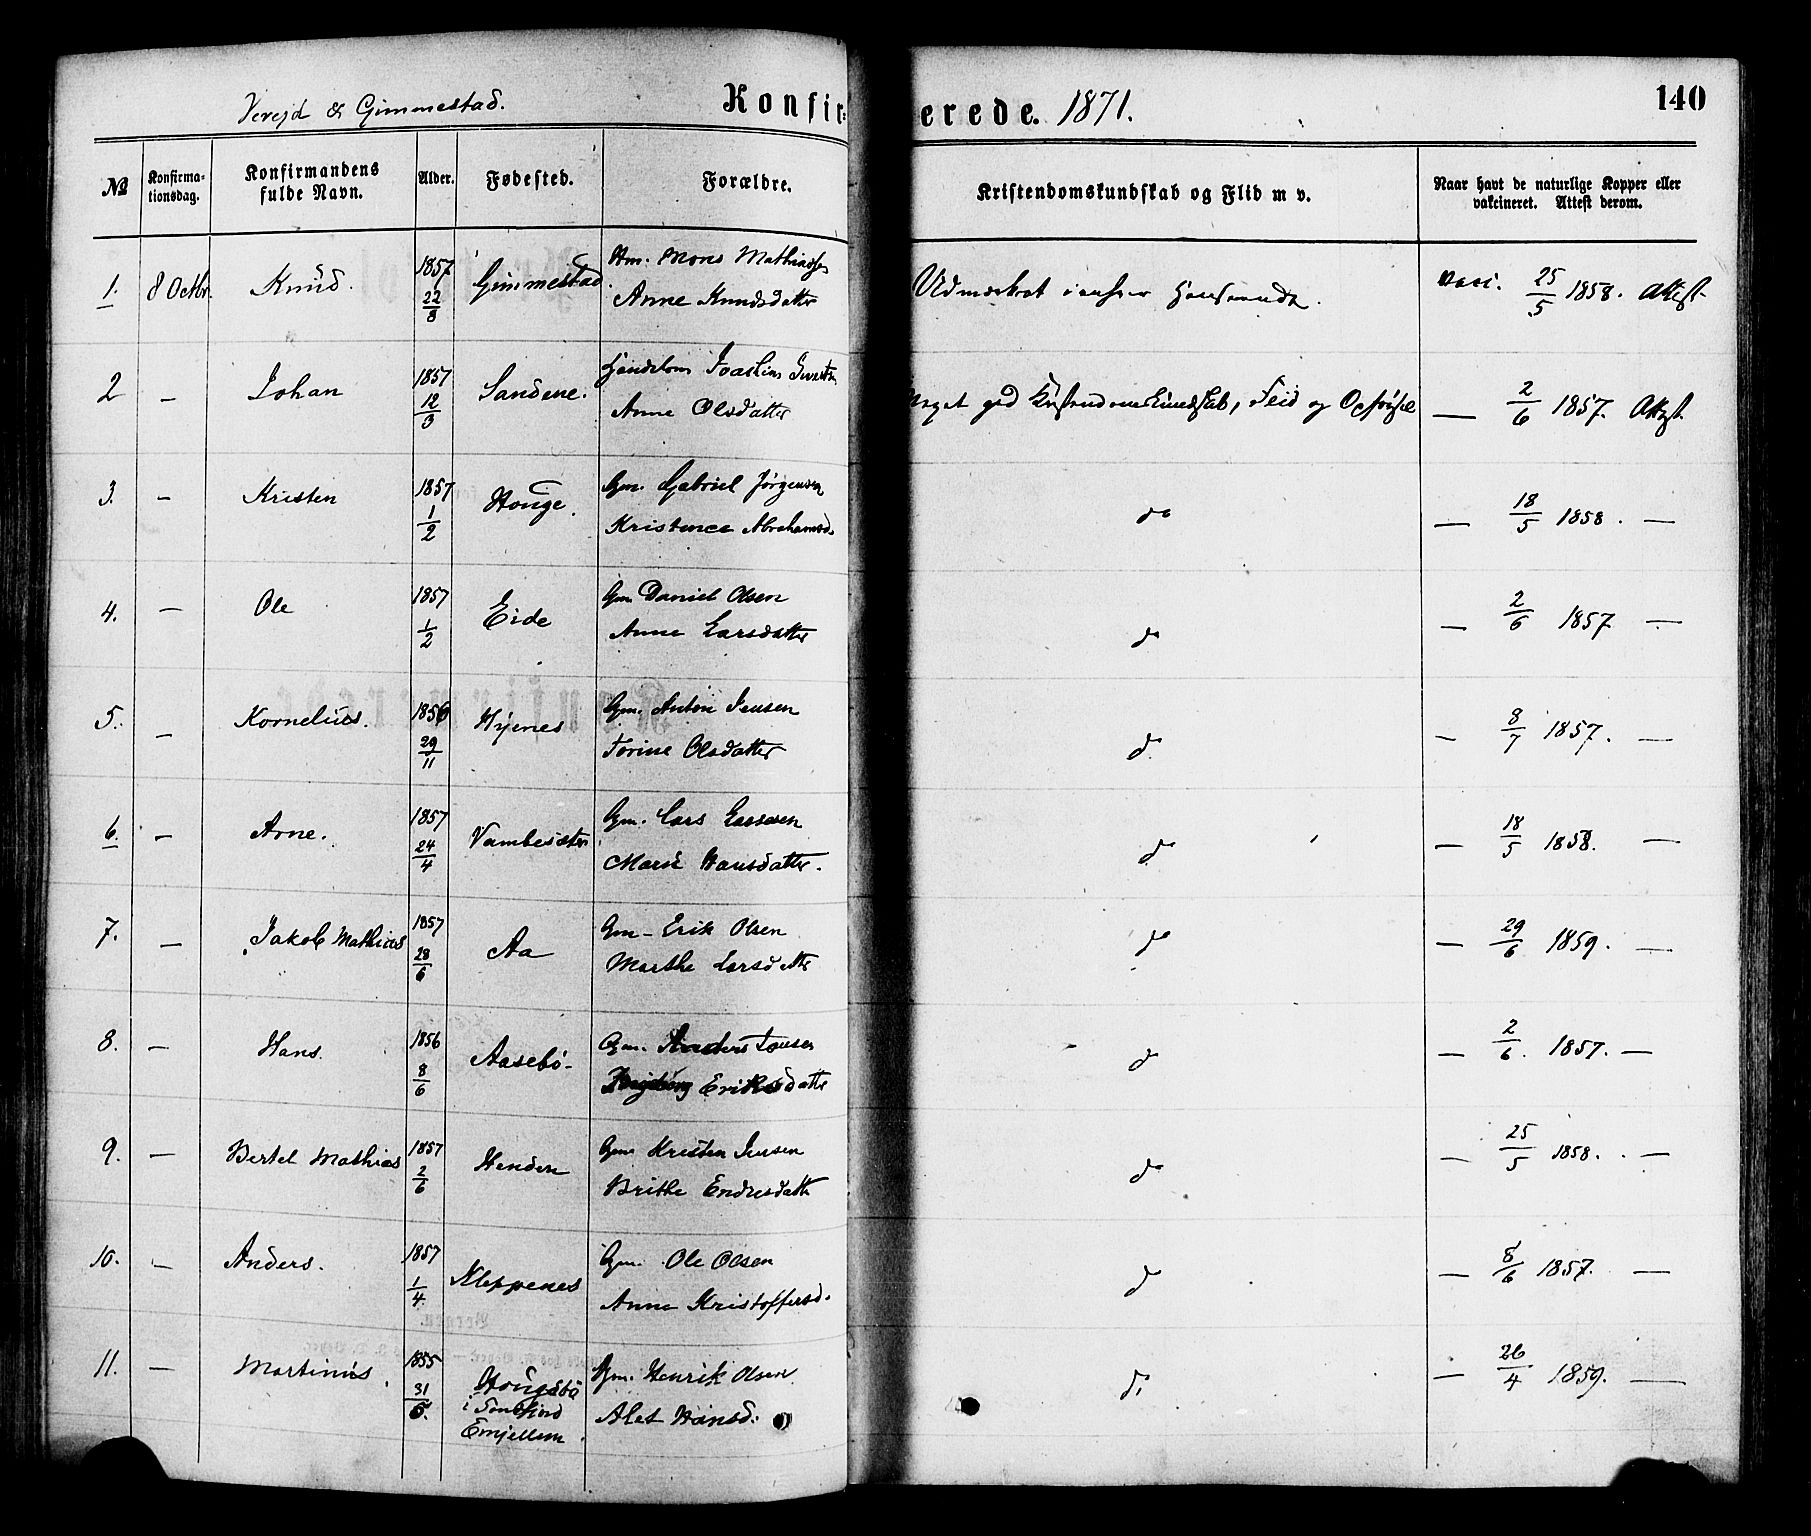 Vereid & Gimmestad. Konfir= erede. 1871. 140
№ Konfirma-tionsdag. Konfirmandens fulde Navn. Alder. Fødested. Forældre. Kristendomskundskab og Flid m v. Naar havt de naturlige Kopper eller vakcineret. Attest derom.
1. 8 Octbr. Knud. 1857 22/8 Gimmestad. Hm. Mons Mathiass. vacc. 25/5 1858. Attest
Anne Knudsdatter
2 – Johan 1857 12/3 Sandene. Joachim Meget god Kristendomskundskab, Flid og Opførsel — 2/6 1857. Attest.
Anne Olsdatter
3. – Kristen 1857 1/2 Houge. Gm. Gabriel Jørgensen do — 18/5 1858. —
Kristence Abrahamsd.
4. – Ole 1857 1/2 Eide Gm. Daniel Olsen do — 2/6 1857 —
Anne Larsdatter
5. – Kornelius. 1856 29/11 Hjenes Gm. Anton Jensen do — 8/7 1857. —
Torine Olsdatter
6. – Arne. 1857 24/4 Vambesæter Gm. Lars Larssen do — 18/5 1858. —
Marie Hansdatter.
7. – Jakob Mathias 1857 28/6 Aa Gm – Erik Olsen do — 29/6 1859. —
Marthe Larsdatter
8. – Hans. 1856 8/6 Aasebö- Gm. Anders do — 2/6. 1857. —
Ingeborg Eriksdatter
9. – Bertel Mathias 1857 2/6 Henden Gm. Kristen Jensen do — 25/5 1858. —
Brithe Endresdatter
10. – Anders. 1857 1/4 Kleppenes Gm. Ole Olsen do — 8/6 1857. —
Anne Kristoffersd.
11. – Martinus 1855 31/5. Hougsbø Gm. Henrik Olsen. do — 26/4 1859. —
i Søndfjord Alet Hansd: